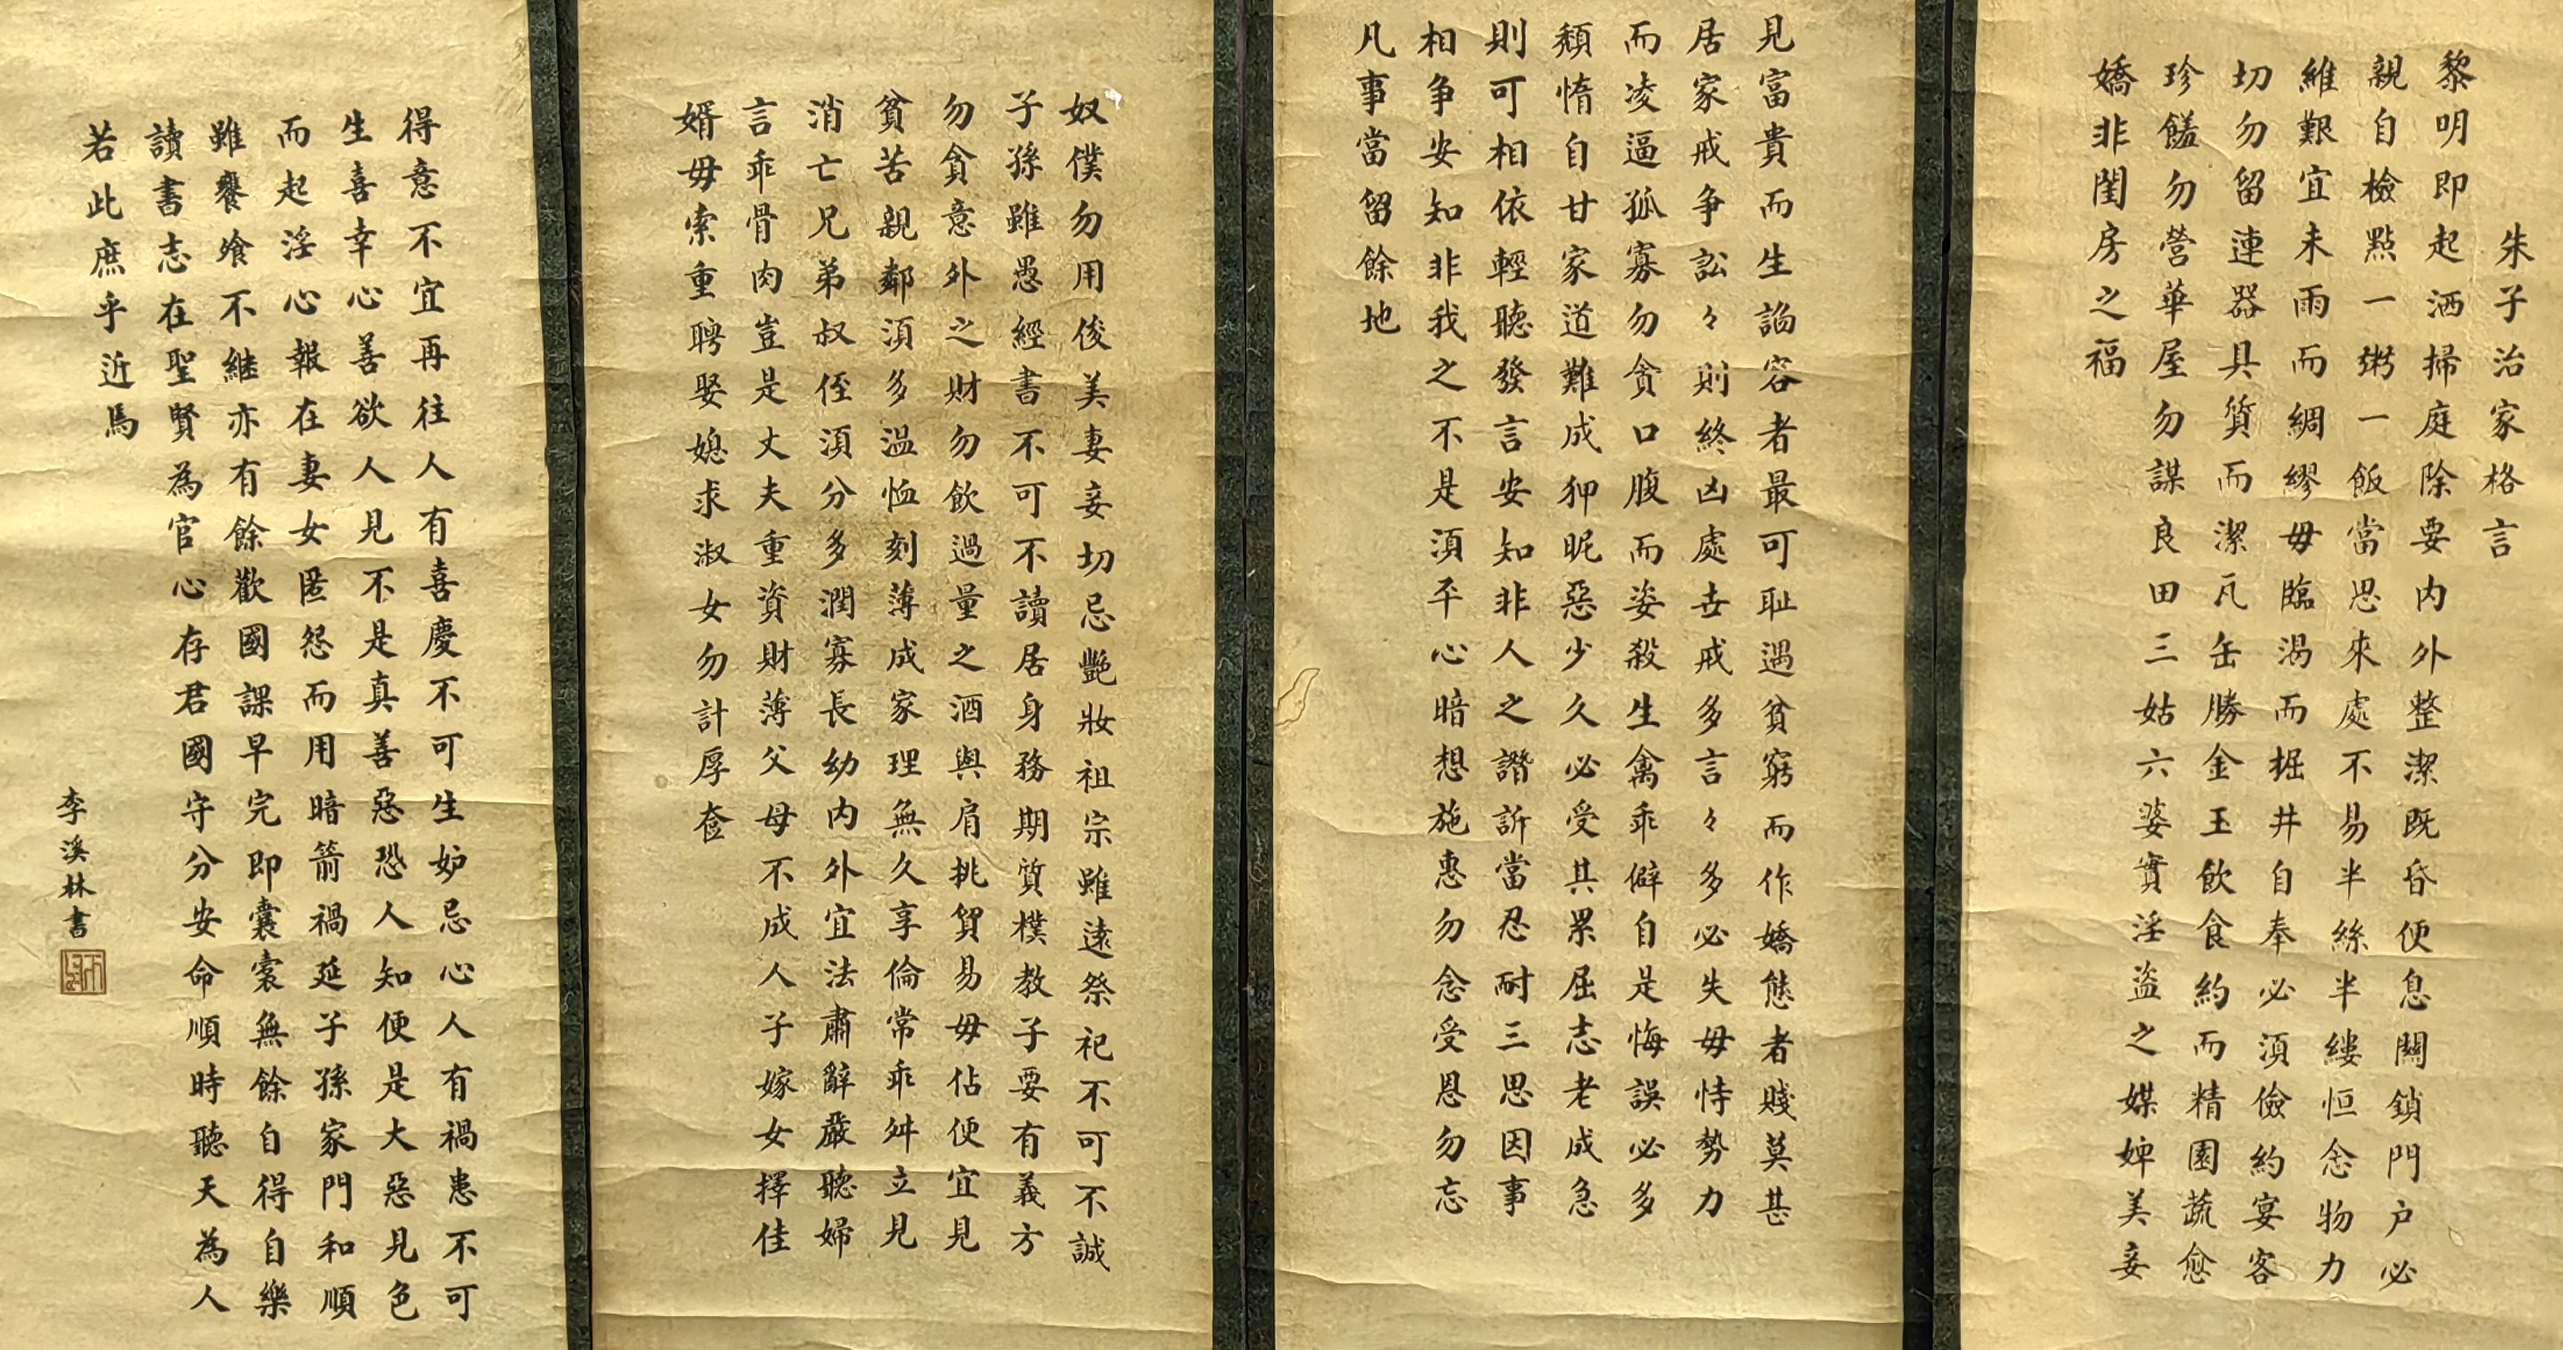 朱子治家格言
黎明即起洒掃庭除要内外整潔既昏便息關鎖門户必
親自檢點一粥一飯當思來處不易半絲半縷恒念物力
維艱宜未雨而綢繆毋臨渴而掘井自奉必須儉約宴客
切勿留連器具質而潔瓦缶勝金玉飲食約而精園蔬愈
珍饈勿營華屋勿謀良田三姑六婆實淫盜之媒婢美妾
嬌非閨房之福
見富貴而生諂容者最可耻遇貧窮而作嬌態者賤莫甚
居家戒争訟々則終凶處世戒多言々多必失毋恃勢力
而凌逼孤寡勿貪口腹而姿殺生禽乖僻自是悔誤必多
頹惰自甘家道難成狎昵惡少久必受其累屈志老成急
則可相依輕聽發言安知非人之譖訴當忍耐三思因事
相争安知非我之不是須平心暗想施惠勿念受恩勿忘
凡事當留餘地
奴僕勿用俊美妻妾切忌艷妝祖宗雖遠祭祀不可不誠
子孫雖愚經書不可不讀居身務期質樸教子要有義方
勿貪意外之財勿飲過量之酒與肩挑貿易毋佔便宜見
貧苦親鄰須多温恤刻薄成家理無久享倫常乖舛立見
消亡兄弟叔侄須分多潤寡長幼内外宜法肅辭嚴聽婦
言乖骨肉豈是丈夫重資財薄父母不成人子嫁女擇佳
婿毋索重聘娶媳求淑女勿計厚奩
得意不宜再往人有喜慶不可生妒忌心人有禍患不可
生喜幸心善欲人見不是真善惡恐人知便是大惡見色
而起淫心報在妻女匿怨而用暗箭禍延子孫家門和順
雖饔飧不継亦有餘歡國課早完即囊橐無餘自得自樂
讀書志在聖賢為官心存君國守分安命順時聽天為人
若此庶乎近焉
李溪林書